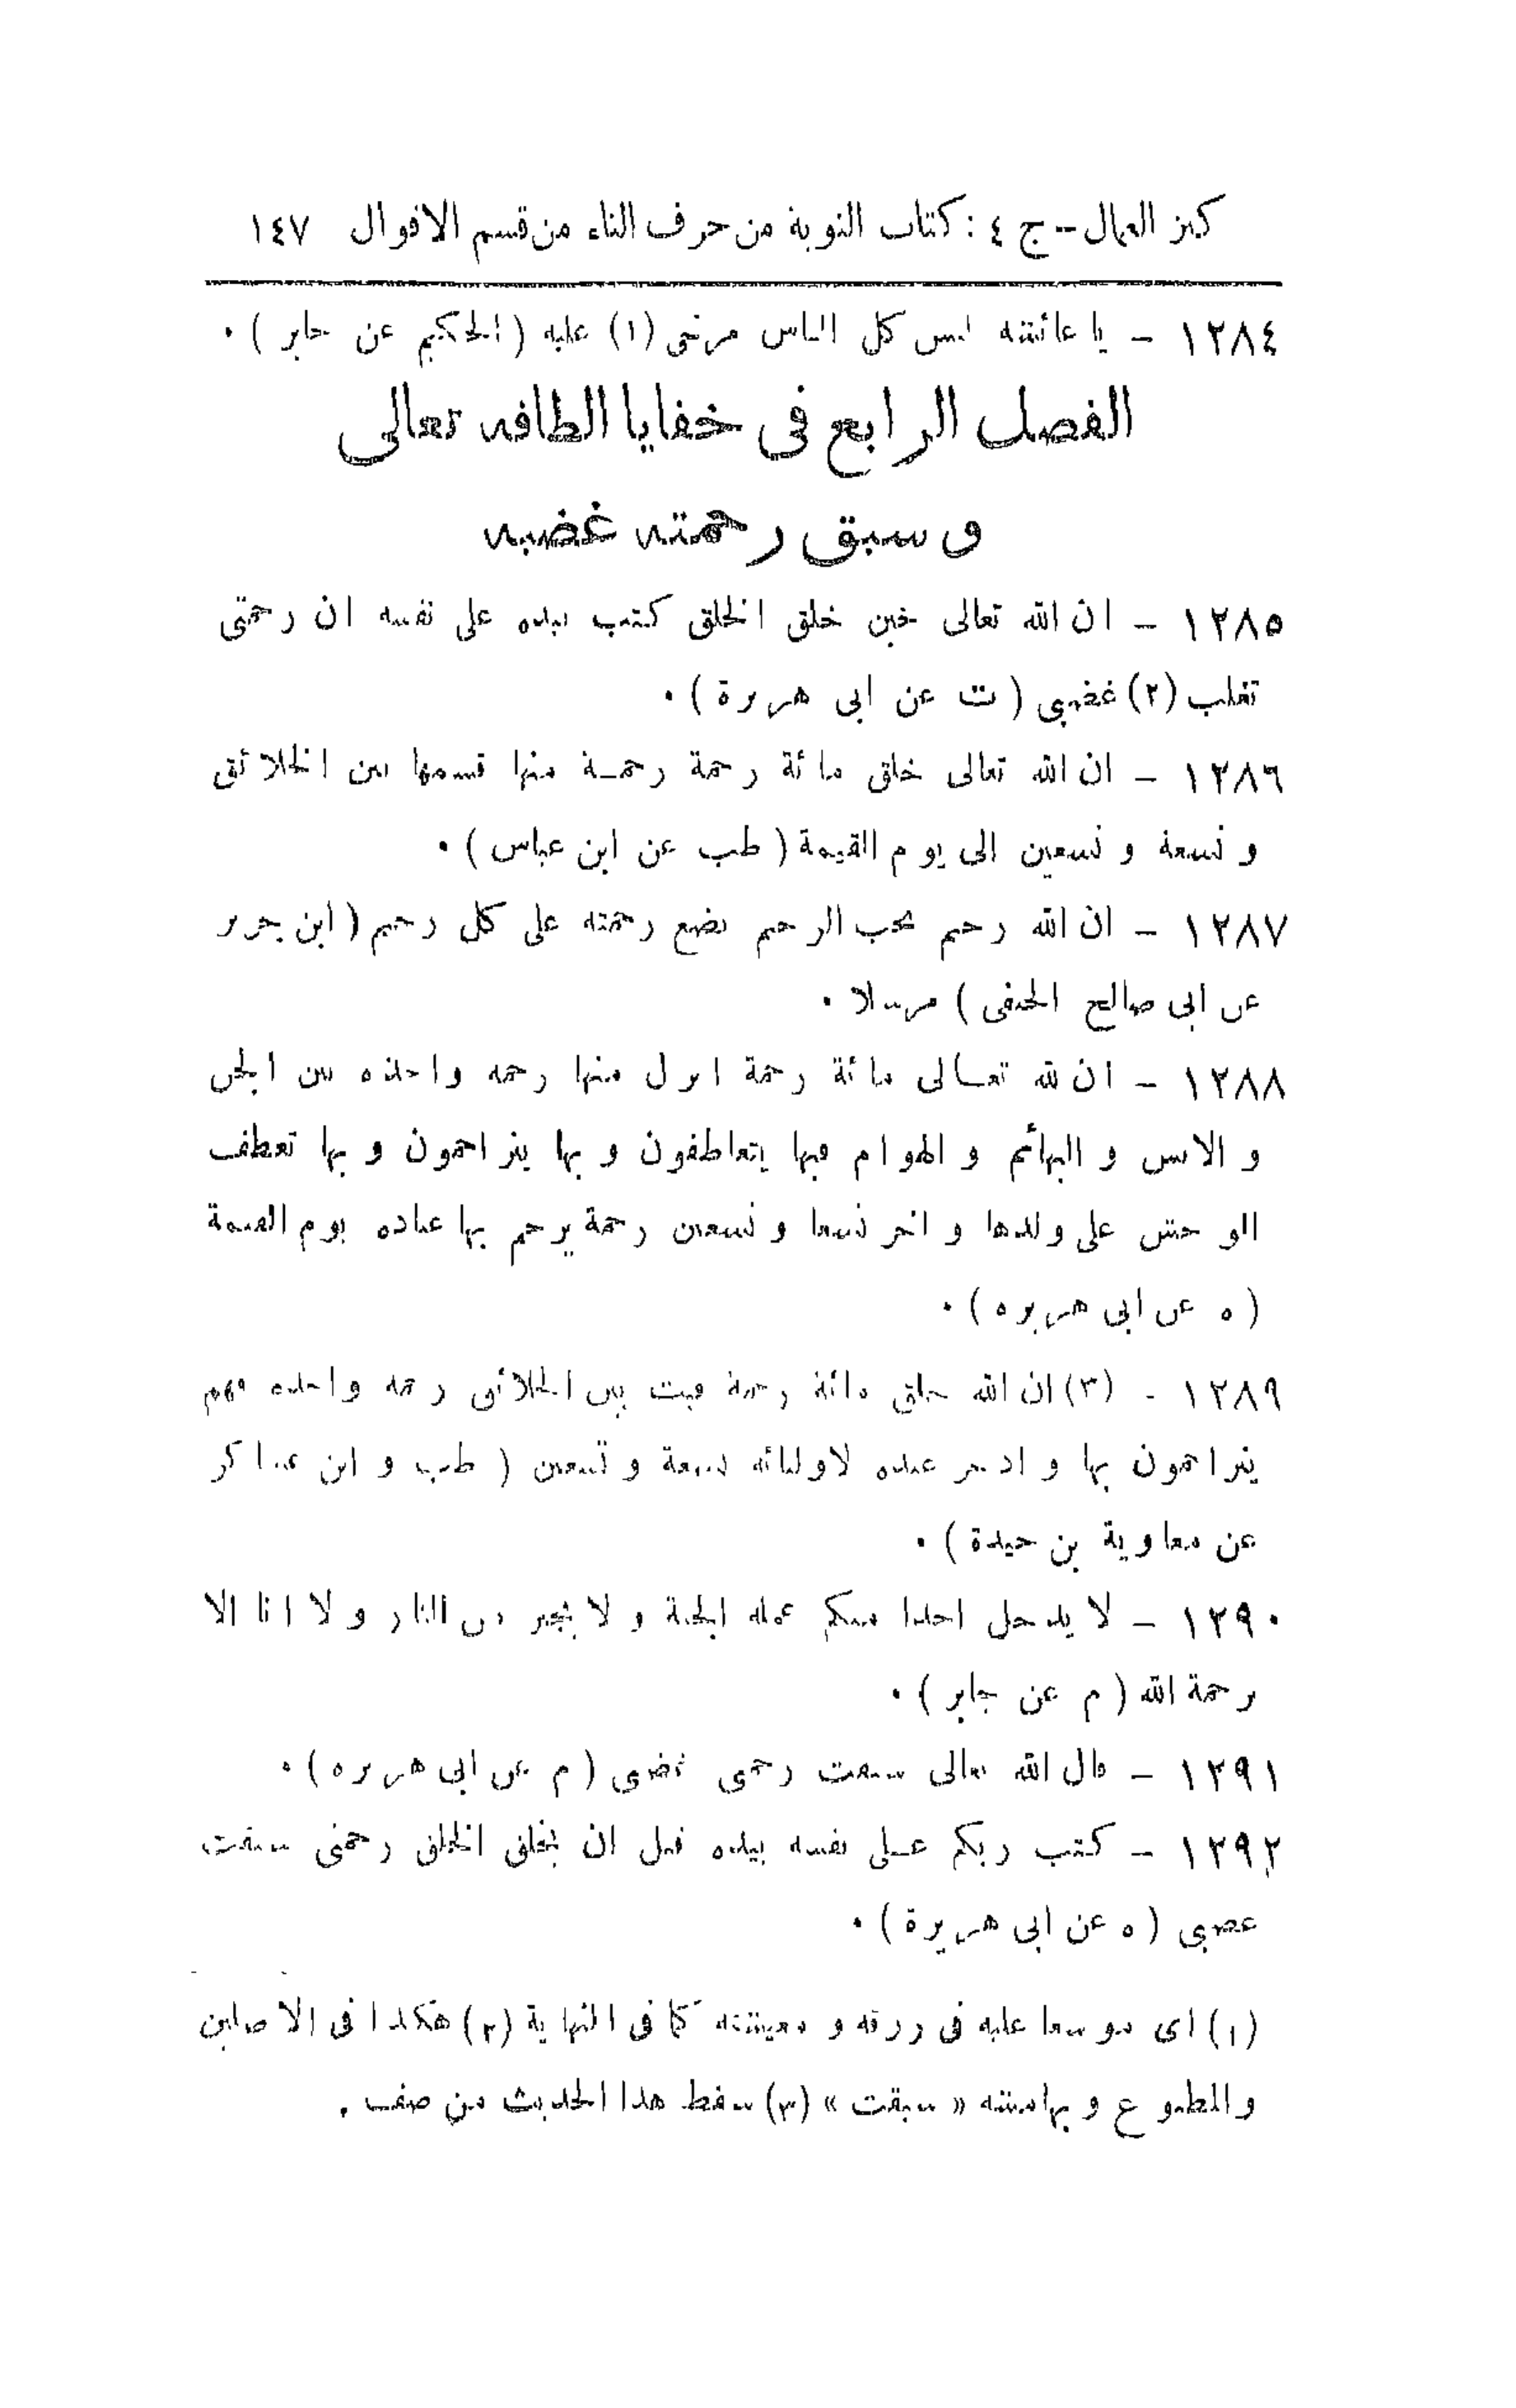 كنز العمال -- ج ٤ : كتاب التوبة من حرف التاء من قسم الاقوال ١٤٧
١٢٨٤ - يا عائشة ليس كل الناس مرخى (١) عليه ( الحكيم عن جابر ) .
الفصل الرابع فى خفايا الطافه تعالى
و سبق رحمته غضبه
١٢٨٥ - ان الله تعالى حين خلق الخلق كتب بيده على نفسه ان رحمتى
تغلب (٢) غضبى ( ت عن ابى هريرة ) .
١٢٨٦ - ان الله تعالى خلق مائة رحمة رحمة منها قسمها بين الخلائق
و تسعة و تسعين الى يوم القيمة ( طب عن ابن عباس ) .
١٢٨٧ - ان الله رحيم يحب الرحيم يضع رحمته على كل رحيم ( ابن جرير
عن ابى صالح الحنفى ) مرسلا .
١٢٨٨ - ان لله تعالى مائة رحمة انزل منها رحمة واحدة بين الجن
و الانس و البهائم و الهوام فبها يتعاطفون و بها يتراحمون و بها تعطف
الوحش على ولدها و اخر تسعا و تسعين رحمة يرحم بها عباده يوم القيمة
( ه عن ابى هريرة ) .
١٢٨٩ - (٣) ان الله خلق مائة رحمة فبث بين الخلائق رحمة واحدة فهم
يتراحمون بها و ادخر عنده لاوليائه تسعة و تسعين ( طب و ابن عساكر
عن معاوية بن حيدة ) .
١٢٩٠ - لا يدخل احدا منكم عمله الجنة و لا يجير من النار و لا انا الا
برحمة الله ( م عن جابر ) .
١٢٩١ - قال الله تعالى سبقت رحمتى غضبى ( م عن ابى هريرة ) .
١٢٩٢ - كتب ربكم على نفسه بيده قبل ان يخلق الخلق رحمتى سبقت
غضبى ( ه عن ابى هريرة ) .
(١) اى موسعا عليه فى رزقه و معيشته كما فى النهاية (٢) هكذا فى الاصلين
والمطبوع و بهامشه « سبقت » (٣) سقط هذا الحديث من صف .